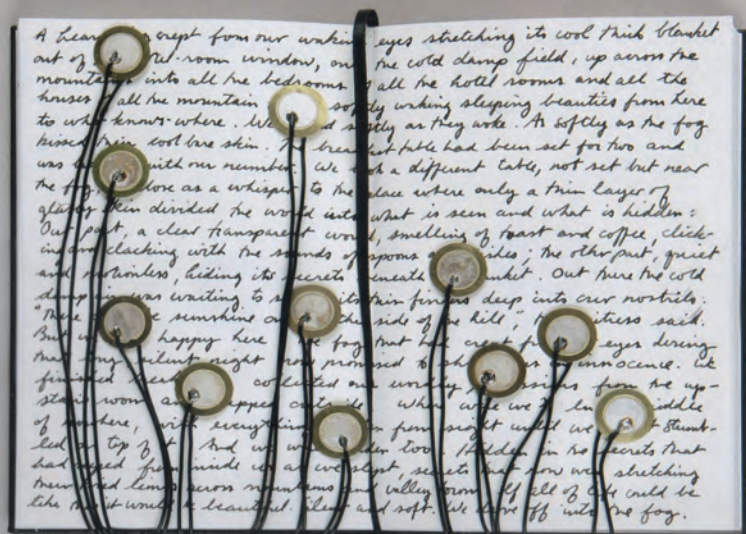 A crept from our waking eyes stretching its cool thick blanket
out of room window, the cold damp field, up across the
mountains into all the bedrooms of all the hotel rooms and all the
houses all the mountain softly waking sleeping beauties from here
to who knows where. We softly as they woke. As softly as the fog
kissed their cool bare skin. The table had been set for two and
was with our number. We a different table, not set but near
the fog. close as a whisper to the place where only a thin layer of
glassy skin divided the world into what is seen and what is hidden:
Our part, a clear transparent world, smelling of toast and coffee, click-
ing and clacking with the sounds of spoons dishes; the other part, quiet
and motionless, hiding its secrets beneath blanket. Out there the cold
damp was waiting to its thin fingers deep into our nostrils.
"There sunshine on the side of the hill", said.
But happy here. fog that had crept eyes during
that silent night now promised to innocence. We
finished collected our worldly from the up-
stairs room and where we
of nowhere, with everything from sight until we stumb-
led on top of it. And we were too. Hidden in the secrets that
had from inside us as we slept, secrets that now were stretching
their limbs across mountains and valley If all of life could be
like this it would be beautiful. Silent and soft. We drove off into the fog.